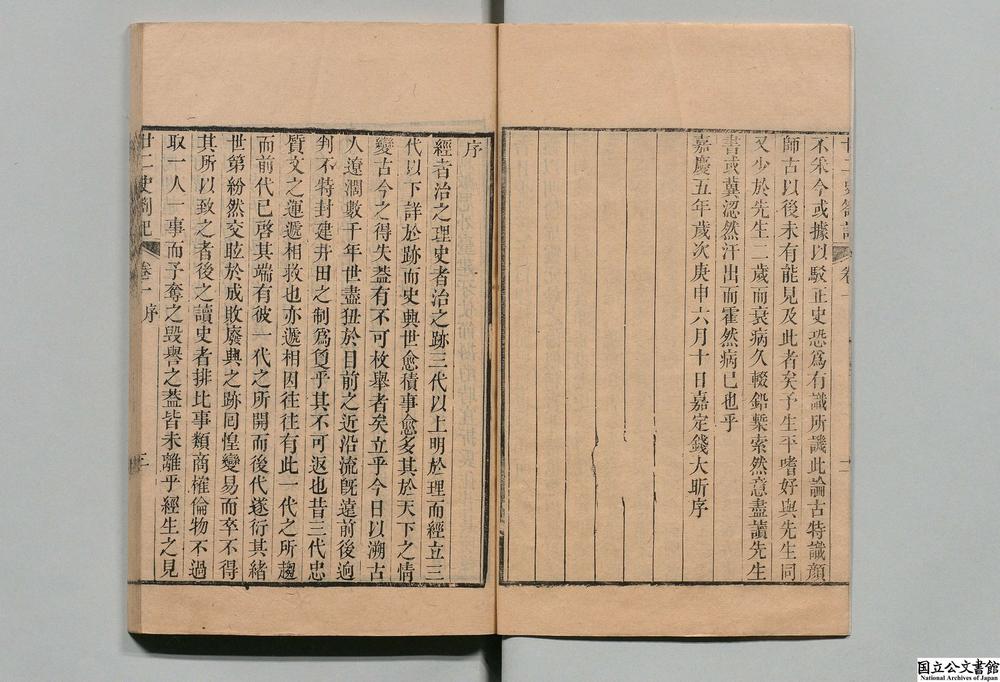 不采今或據以駁正史恐爲有識所譏此論古特識顏
師古以後未有能見及此者矣予生平嗜好與先生同
又少於先生二歲而衰病久輟鉛槧索然意盡讀先生
書或冀涊然汗出而霍然病已也乎
嘉慶五年歲次庚申六月十日嘉定錢大昕序
序
經者治之理史者治之跡三代以上明於理而經立三
代以下詳於跡而史興世愈積事愈多其於天下之情
變古今之得失葢有不可枚舉者矣立乎今日以溯古
人遼濶數千年世盡狃於目前之近沿流旣遠前後逈
判不特封建井田之制爲夐乎其不可返也昔三代忠
質文之運遞相救也亦遞相因往往有此一代之所趨
而前代已啓其端有彼一代之所開而後代遂衍其緒
世第紛然交眩於成敗廢興之跡囘惶變易而卒不得
其所以致之者後之讀史者排比事類商榷倫物不過
取一人一事而予奪之毀譽之葢皆未離乎經生之見
廿二史劄記 卷一 序
国立公文書館
National Archives of Japan